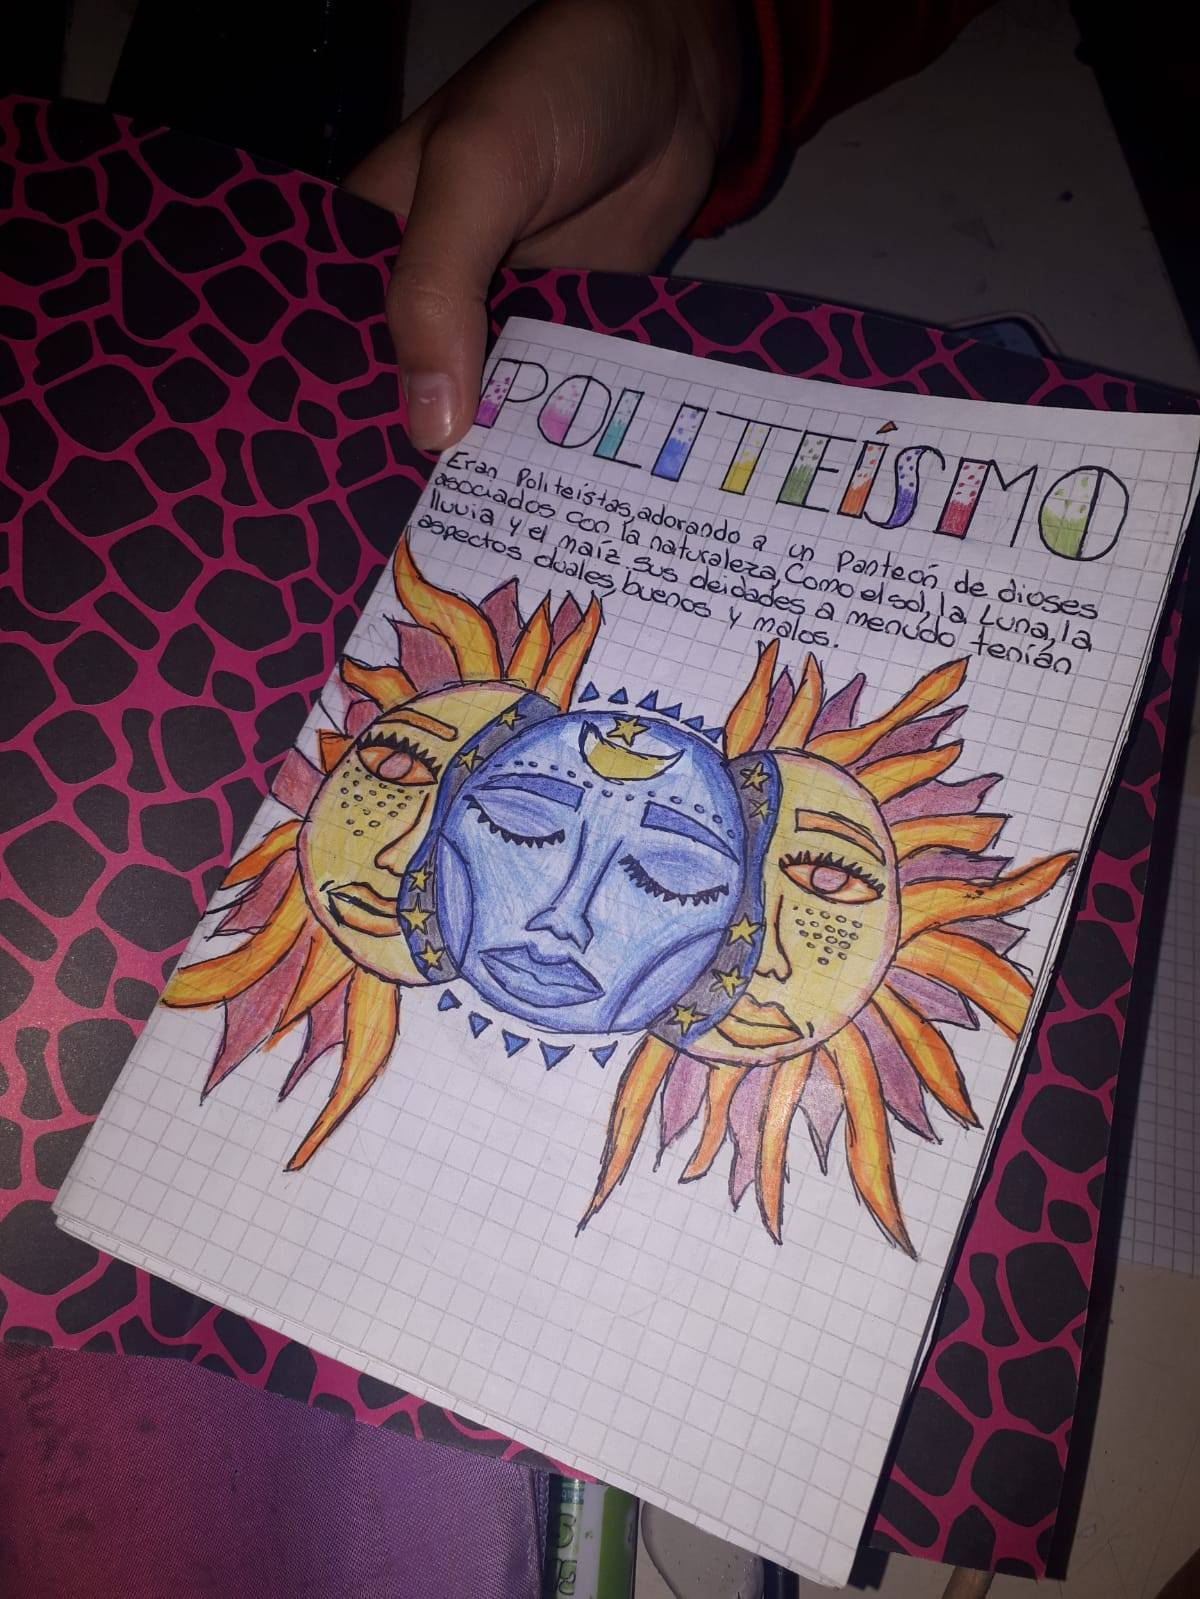 POLITEÍSMO
Eran Politeístas, adorando a un Panteón de dioses
asociados con la naturaleza, Como el sol, la Luna, la
lluvia y el maíz. sus deidades a menudo tenían
aspectos duales, buenos y malos.